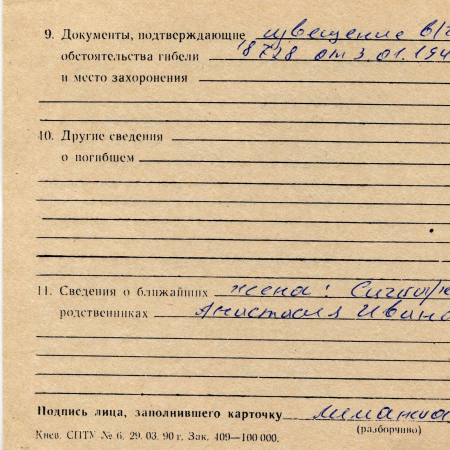 9. Документы, подтверждающие извещение в/ч
обстоятельства гибели 18728 от 3.01.194
и место захоронения
10. Другие сведения
о погибшем
11. Сведения о ближайших жена:
родственниках Анастасия Ивано
Подпись лица, заполнившего карточку
(разборчиво)
Киев. СПТУ № 6. 29. 03. 90 г. Зак. 409—100 000.